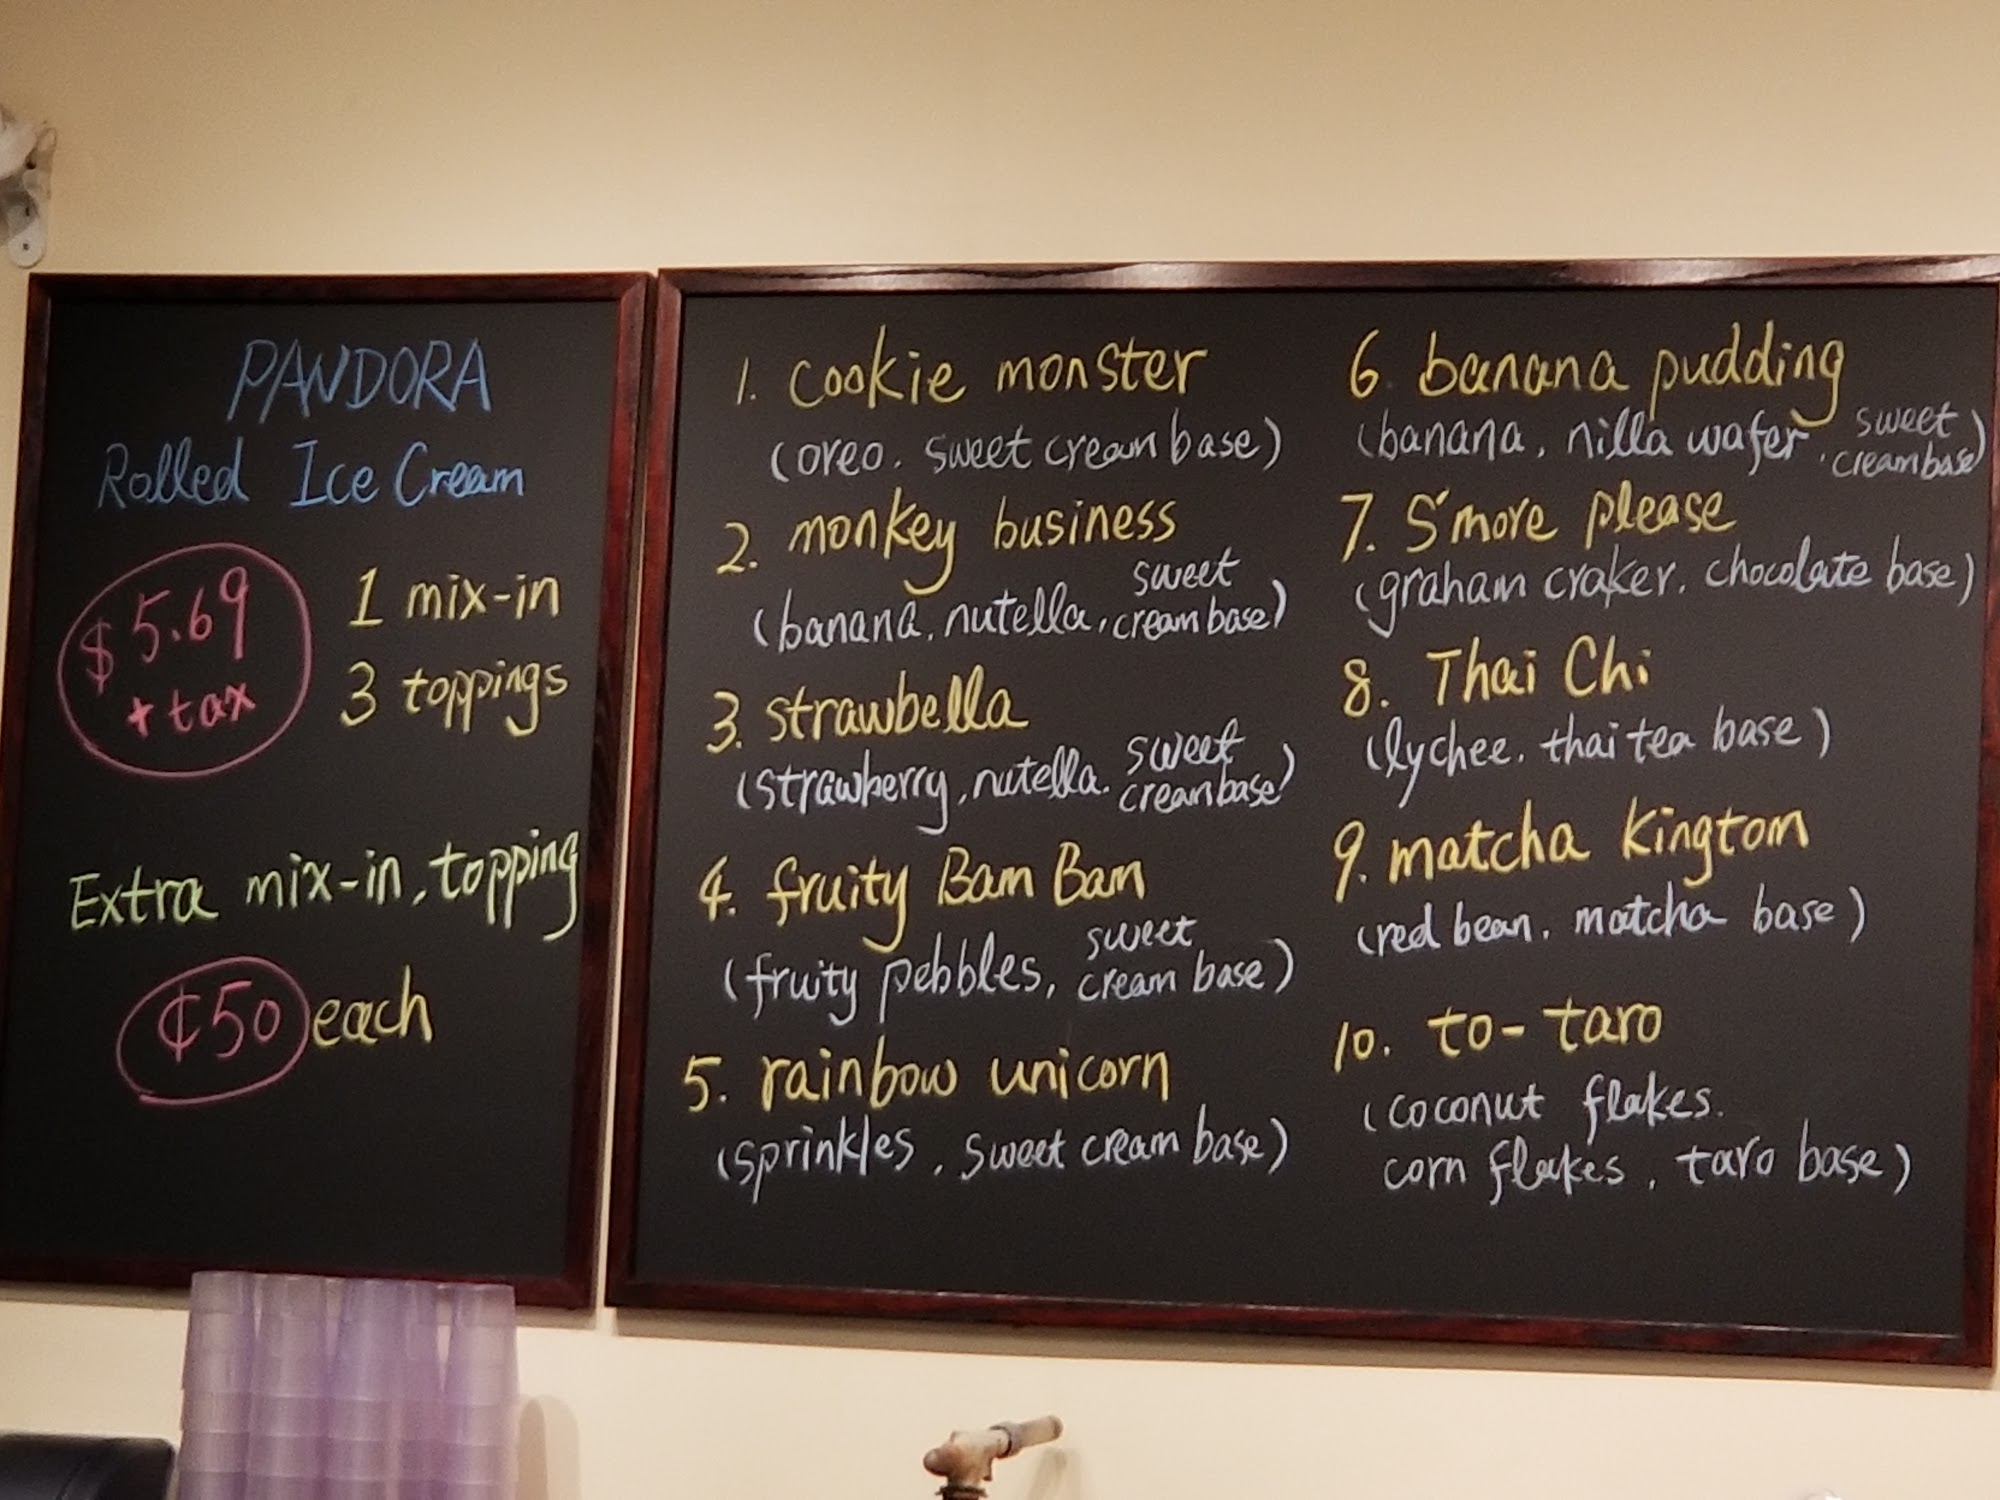 PANDORA
Rolled Ice Cream
$5.69
+ tax
1 mix-in
3 toppings
Extra mix-in, topping
¢50 each
1. cookie monster
(oreo. sweet cream base)
2. monkey business
(banana, nutella, sweet cream base)
3. strawbella
(strawberry, nutella. sweet cream base)
4. fruity Bam Bam
(fruity pebbles, sweet cream base)
5. rainbow unicorn
(sprinkles, sweet cream base)
6. banana pudding
(banana, nilla wafer, sweet cream base)
7. S'more please
(graham craker. chocolate base)
8. Thai Chi
(lychee. thai tea base)
9. matcha kingtom
(red bean. matcha base)
10. to-taro
(coconut flakes.
corn flakes, taro base)